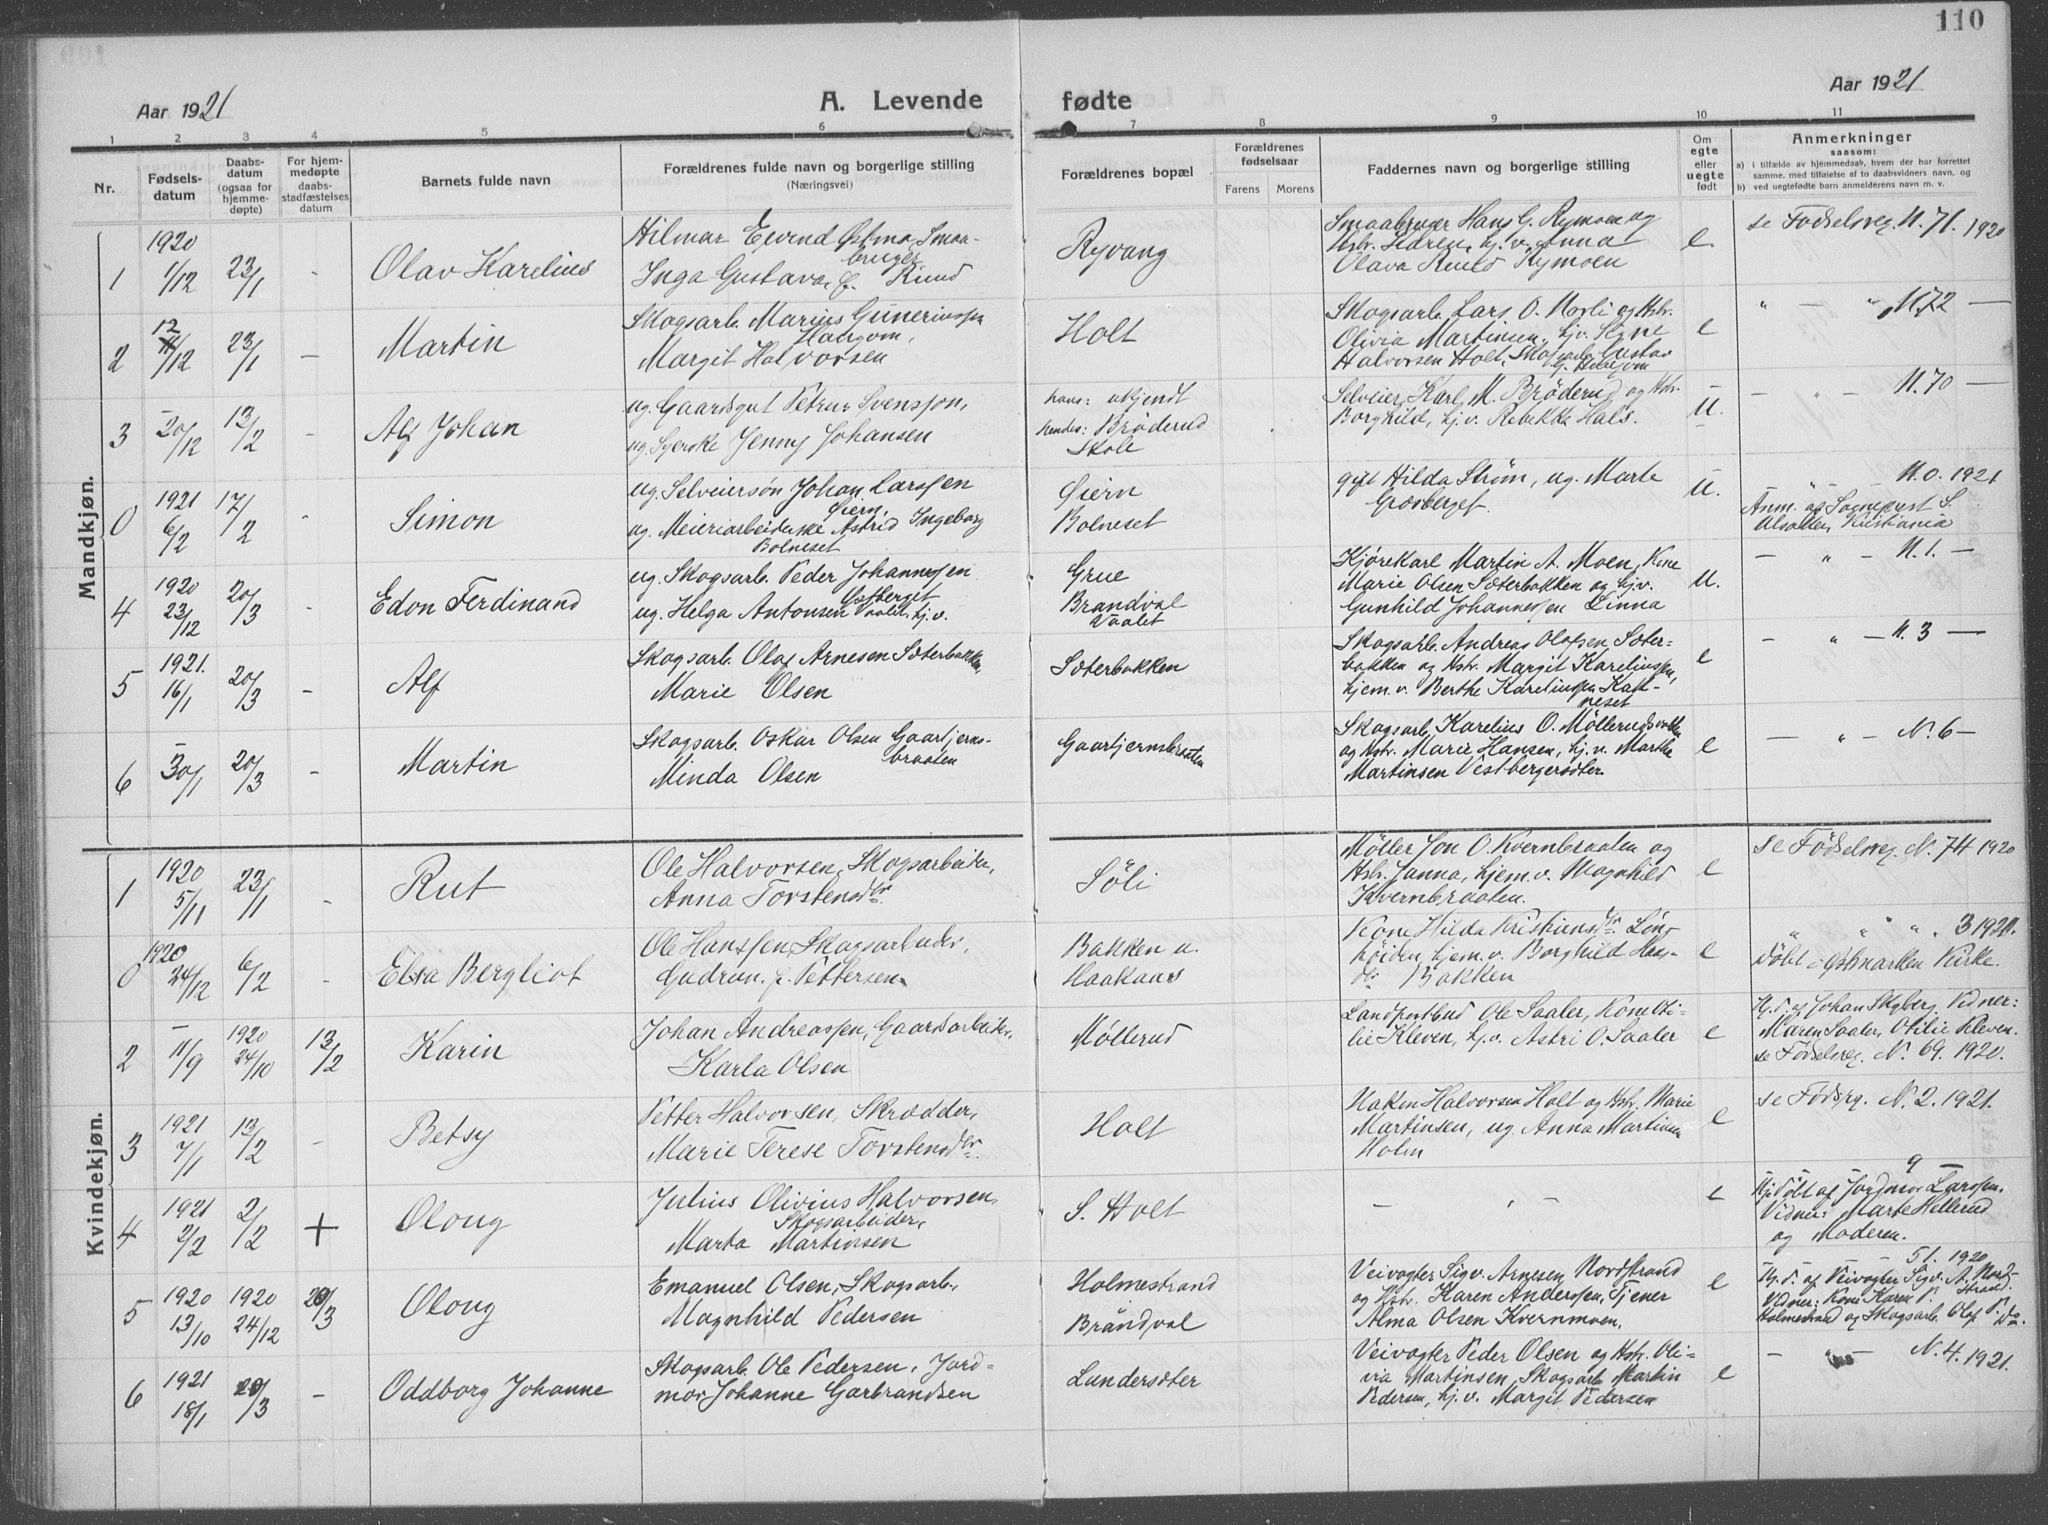 110
Aar 1921
A. Levende fødte
Aar 1921
1 2 3 4 5 6 7 8 9 10 11
Nr.
Fødsels-
datum
Daabs-
datum
(ogsaa for
hjemme-
døpte)
For hjem-
medøpte
daabs-
stadfæstelses
datum
Barnets fulde navn
Forældrenes fulde navn og borgerlige stilling
(Næringsvei)
Forældrenes bopæl
Forældrenes
fødselsaar
Farens Morens
Faddernes navn og borgerlige stilling
Om
egte
eller
uegte
født
Anmerkninger
saasom:
a) i tilfælde av hjemmedaab, hvem der har forrettet
samme, med tilføielse af to daabsvidners navn, og
b) ved uegtefødte barn anmelderens navn m. v.
Mandkjøn.
1
1920
1/12
23/1
-
Olav Karelius
Hilmar Eivind Østmo, Smaa-
bruger
Inga Gustava, f. Rund
Ryvang
Smaabruger Hans G. Rymoen og
Hstr. Karen, hj. v. Anna
Olava Rymoen
e
se Fødselsreg. N. 71. 1920
2
12/12
23/1
-
Martin
Skogsarb. Marius Guneriussen
Margit Halvorsen
Holt
Skogsarb. Lars O. Norli og Hstr.
Olivia Martinsen, hj. v. Signe
Halvorsen Holt, Skogsarb. Gustav
e
" — " N. 72 —
3
20/12
13/2
-
Alf Johan
ug. Gaardsgut Petrus Svensson,
ug. Syerske Jenny Johansen
hans: ukjendt
hendes: Brøderud
Skole
Selveier Karl M. Brøderud og Hstr.
Borghild, hj. v. Rebekka Hals.
U.
— " — N. 70 —
0
1921
6/2
17/2
-
Simon
ug. Selveiersøn Johan Larssen
Øiern,
ug. Meieriarbeiderske Astrid Ingeborg
Bolneset
Øiern
Bolneset
gift Hilda Strøm, ug. Marte
Grasberget.
U.
— " — N. 0. 1921
Anm. af Sogneprest S.
Kristiania
4
1920
23/12
20/3
-
Edon Ferdinand
ug. Skogsarb. Peder Johannessen
ug. Helga Antonsen Vaalet, hj. v.
Grue
Brandval
Vaalet
Kjørekarl Martin A. Moen, Kone
Marie Olsen Sæterbakken og hj. v.
Gunhild Johannessen Linna
U.
— " — N. 1. —
5
1921.
16/1
20/3
-
Alf
Skogsarb. Olaf Arnesen Sæterbakken
Marie Olsen
Sæterbakken
Skogsarb. Andreas Olafsen Sæter-
bakken og Hstr. Margit Kareliussen,
hjem. v. Berthe Kareliussen Kal-
neset
e
— " — N. 3 —
6
30/1
20/3
-
Martin
Skogsarb. Oskar Olsen Gaartjerns-
braaten
Minda Olsen
Gaartjernsbraaten
Skogsarb. Karelius O. Møllerudsvakken
og Hstr. Marie Hansen, hj. v. Marthe
Martinsen Vestbergersæter.
e
— " — N. 6 —
Kvindekjøn.
1
1920
5/11
23/1
-
Rut
Ole Halvorsen, Skogsarbeider,
Anna Torstensdtr.
Söli
Møller Jon O. Kvernbraaten og
Hstr. Janna, hjem. v. Magnhild
Kvernbraaten.
e
se Fødselsreg. N. 74 1920
0
1920
24/12
6/2
-
Elsa Bergliot
Ole Hanssen, Skogsarbeider,
Gudrun, f. Pettersen
Bakken u.
Haakaas
Kone Hilda Kristiansdtr. Ling-
höiden, hjem. v. Borghild Hans-
dtr. Bakken
e
" " " 3 1921.
Döbt i Östmarken Kirke.
2
11/9
1920
24/10
13/2
Karin
Johan Andreassen, Gaardsarbeider,
Karla Olsen
Møllerud
Landpostbud Ole Saaler, Kone Oti-
lie Kleven, hj. v. Astri O. Saaler
e
Hj. d. af Johan Skyberg. Vidner:
Maren Saaler, Otilie Kleven.
se Fødselsreg. N. 69. 1920.
3
1921
7/1
13/2
-
Betsy
Petter Halvorsen, Skrædder,
Marie Terese Torstensdtr.
Holt
Haken Halvorsen Holt og Hstr. Marie
Martinsen, ug. Anna Martinsen
Holm
e
se Fødsrg. N. 2. 1921.
4
1921
2/2
2/2
+
Oloug
Julius Olivius Halvorsen,
Skogsarbeider,
Marta Martinsen
S. Holt
— " —
e
9 —
Hj. döbt af Jordmor Larssen.
Vidner: Marte Hellerud
og Moderen.
5
1920
13/10
1920
24/12
20/3
Oloug
Emanuel Olsen, Skogsarb.,
Magnhild Pedersen
Holmestrand
Brandval
Veivogter Sigv. Arnesen Nordstrand
og Hstr. Karen Anderssen, Tjener
Alma Olsen Kvernmoen.
e
51. 1920
Hj. d. af Veivogter Sigv. A. Nord-
strand.
Vidner: Kone Karen
Holmestrand og Skogsarb. Olaf P. do.
6
1921
18/1
20/3
-
Oddborg Johanne
Skogsarb. Ole Pedersen, Jord-
mor Johanne Garbrandsen
Lundersæter
Veivogter Peder Olsen og Hstr. Oli-
via Martinsen, Skogsarb. Martin
Pedersen, hj. v. Margit Pedersen
e
— " — N. 4. 1921.